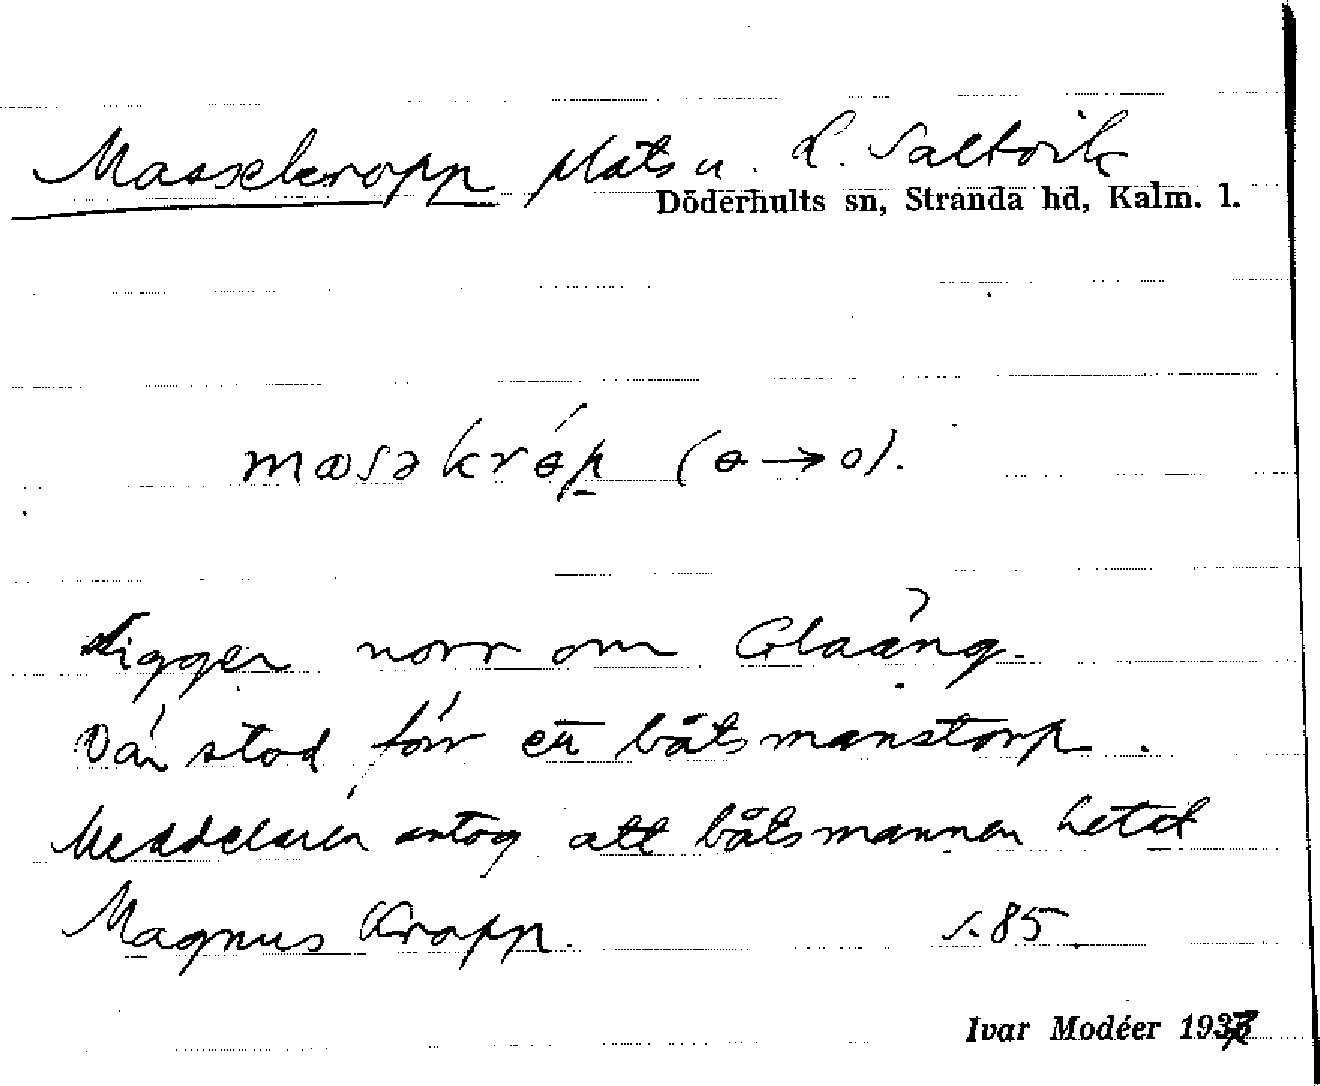 Massekropp plats u. L. Saltvik
Döderhults sn, Stranda hd, Kalm. l.
masəkrɵ́p (ɵ→o).
Ligger norr om Glaäng.
Där stod förr ett båtsmanstorp.
Meddelaren antog att båtsmannen hetat
Magnus Kropp. s. 85
Ivar Modéer 1937